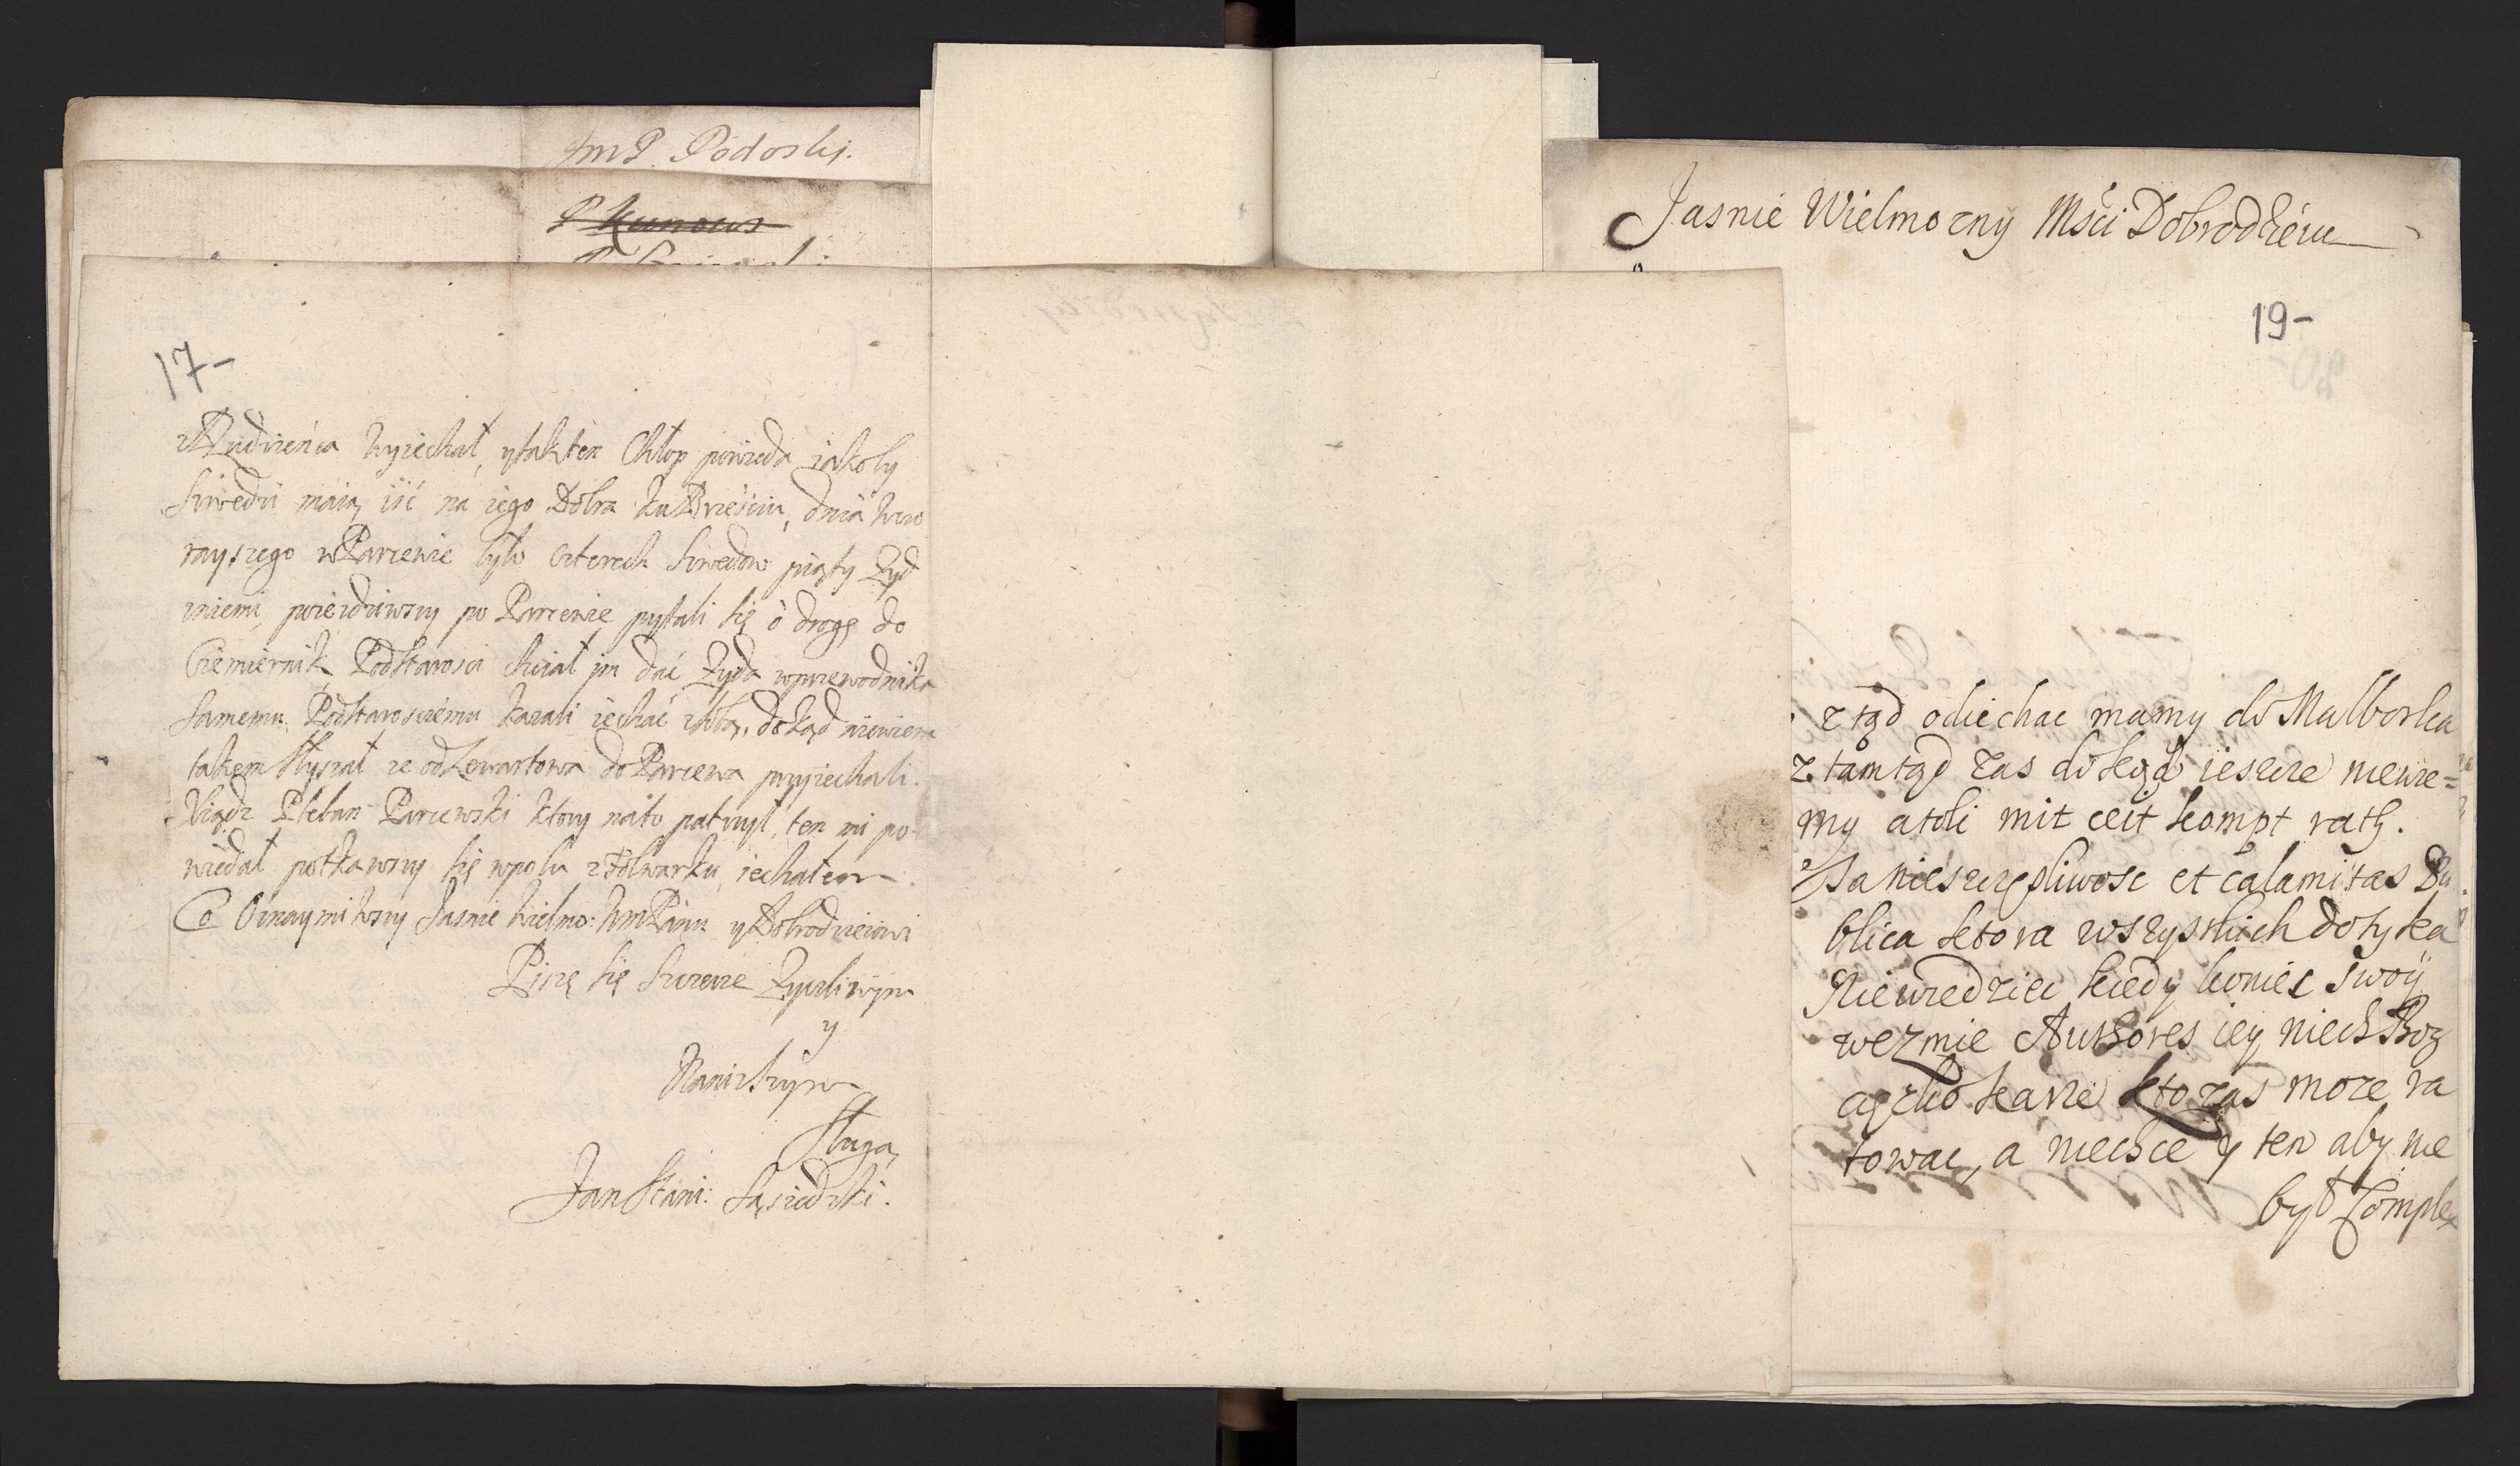 JmP Podoski.
P Kunows
17-
z Rudzieńca wyiechał, y tak ten Chłop powieda iakoby
Szwedzi maią iść na iego Dobra ku Brześciu, dnia wczo
rayszego w Parczewie było czterech Szwedow piąty Zyd
zniemi, poiezdziwszy po Parczewie pytali się o drogę do
Czemiernik, Podstarosci chciał jm dać Zyda wprzewodnika
samemu Podstarosciemu kazali iechać zsobą, dokąd niewiem
takem słyszał ze od Lewartowa do Parczewa przyiechali.
Xiądz Pleban Parczewski ktory nato patrzył, ten mi po-
wiedał potkawszy się wpolu zfolwarku iechałem.
Co Oznaymiwszy Jasnie Wielmo: WmPanu y Dobrodzieiowi
Piszę się Szczerze Zyczliwym
y
Naniższym
Sługą
Jan Stani: Sąsiedzki.
Jasnie Wielmozny Mści Dobrodzieiu
19-
20-
ztąd odiechac mamy do Malborka
z tamtąd zas dokąd ieszcze niewie=
my atoli mit ceit kompt rath.
Ta nieszczęsliwosc et calamitas Pu
blica ktora wszystkich dotyka
Niewiedziec kiedy koniec swoÿ
wezmie Authores iey niech Bog
cięzko karze kto zas moze ra
towac, a niechce y ten aby nie
był Complex